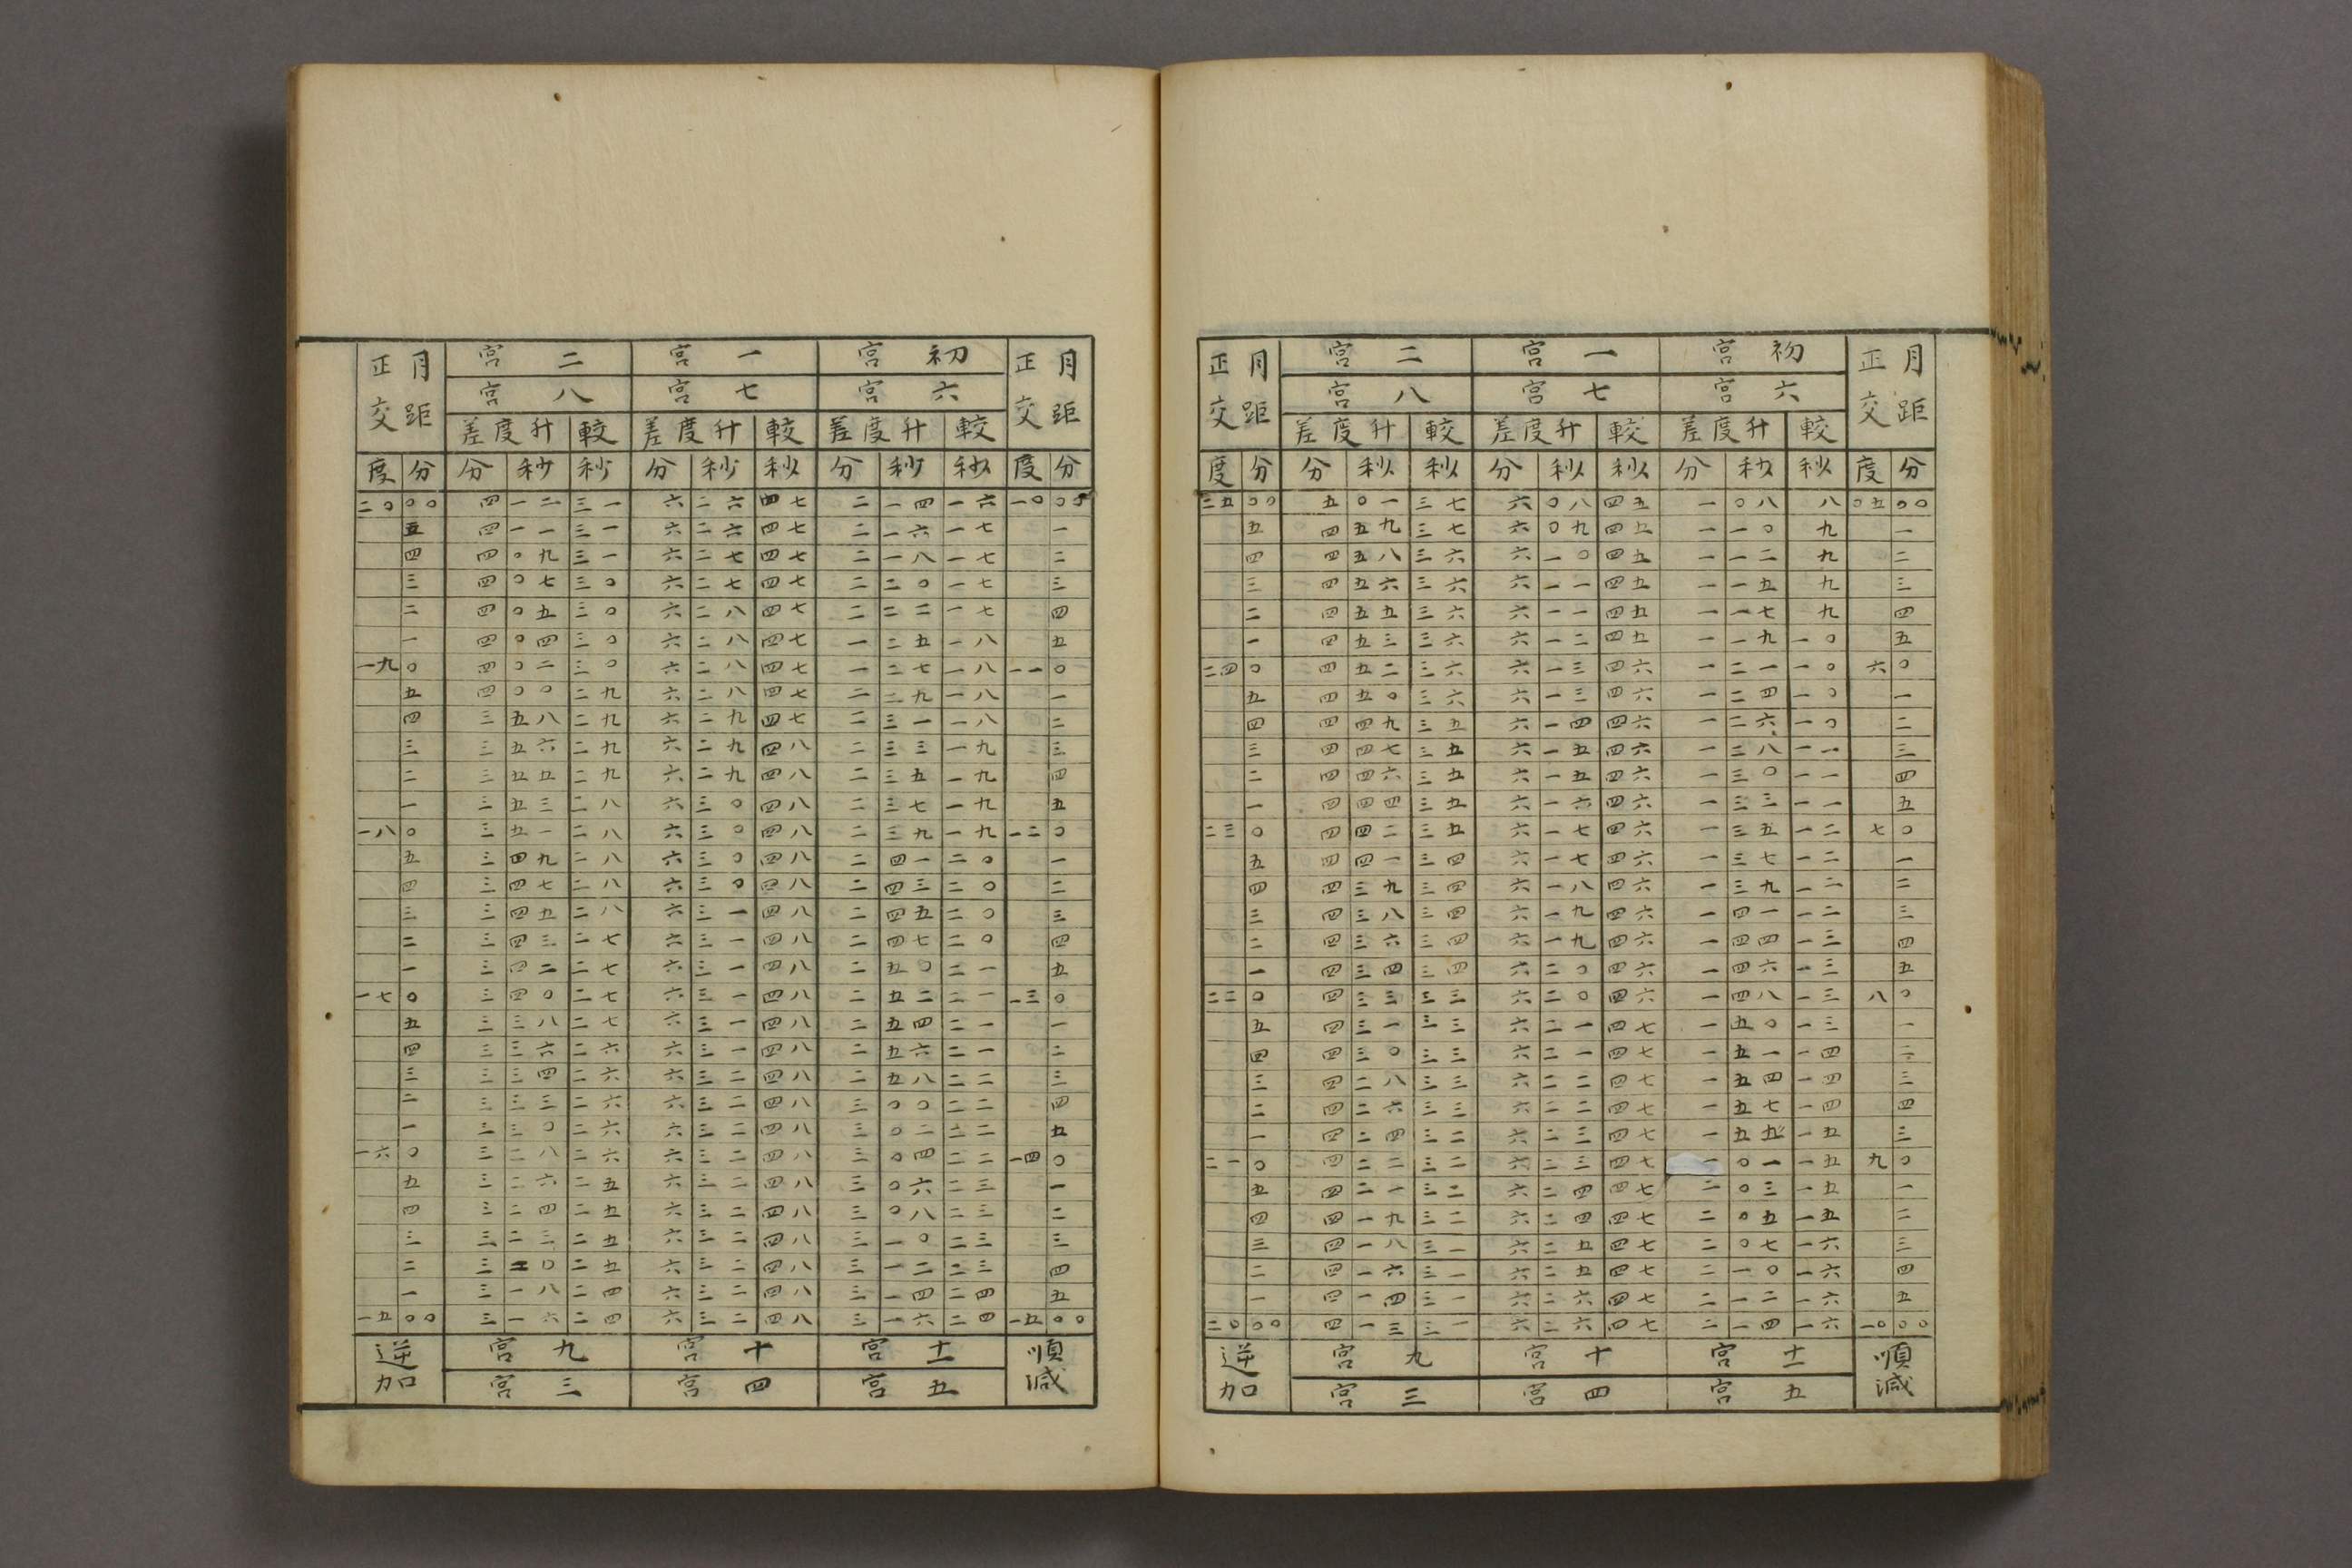 月距正交 初宮 一宮 二宮 月距正交
六宮 七宮 八宮
較 升度差 較 升度差 較 升度差
度 分 分 秒 秒 分 秒 秒 分 秒 秒 度 分
二五 〇〇 五 〇一 三七 六 〇八 四五 一 〇八 八 〇五 〇〇
五 四 五九 三七 六 〇九 四五 一 一〇 九 一
四 四 五八 三六 六 一〇 四五 一 一二 九 二
三 四 五六 三六 六 一一 四五 一 一五 九 三
二 四 五五 三六 六 一一 四五 一 一七 九 四
一 四 五三 三六 六 一二 四五 一 一九 一〇 五
二四 〇 四 五二 三六 六 一三 四六 一 二一 一〇 六 〇
五 四 五〇 三六 六 一三 四六 一 二四 一〇 一
四 四 四九 三五 六 一四 四六 一 二六 一〇 二
三 四 四七 三五 六 一五 四六 一 二八 一一 三
二 四 四六 三五 六 一五 四六 一 三〇 一一 四
一 四 四四 三五 六 一六 四六 一 三三 一一 五
二三 〇 四 四二 三五 六 一七 四六 一 三五 一二 七 〇
五 四 四一 三四 六 一七 四六 一 三七 一二 一
四 四 三九 三四 六 一八 四六 一 三九 一二 二
三 四 三八 三四 六 一九 四六 一 四一 一二 三
二 四 三六 三四 六 一九 四六 一 四四 一三 四
一 四 三四 三四 六 二〇 四六 一 四六 一三 五
二二 〇 四 三三 三三 六 二〇 四六 一 四八 一三 八 〇
五 四 三一 三三 六 二一 四七 一 五〇 一三 一
四 四 三〇 三三 六 二一 四七 一 五一 一四 二
三 四 二八 三三 六 二二 四七 一 五四 一四 三
二 四 二六 三三 六 二二 四七 一 五七 一四 四
一 四 二四 三二 六 二三 四七 一 五 一五 三
二一 〇 四 二二 三二 六 二三 四七 〇一 一五 九 〇
五 四 二一 三二 六 二四 四七 二 〇三 一五 一
四 四 一九 三二 六 二四 四七 二 〇五 一五 二
三 四 一八 三一 六 二五 四七 二 〇七 一六 三
二 四 一六 三一 六 二五 四七 二 一〇 一六 四
一 四 一四 三一 六 二六 四七 二 一二 一六 五
二〇 〇〇 四 一三 三一 六 二六 四七 二 一四 一六 一〇 〇〇
順減 十一宮 十宮 九宮 逆加
五宮 四宮 三宮
月距正交 初宮 一宮 二宮 月距正交
六宮 七宮 八宮
較 升度差 較 升度差 較 升度差
度 分 分 秒 秒 分 秒 秒 分 秒 秒 度 分
二〇 〇〇 四 一二 三一 六 二六 四七 二 一四 一六 一〇 〇〇
五 四 一一 三一 六 二六 四七 二 一六 一七 一
四 四 〇九 三一 六 二七 四七 二 一八 一七 二
三 四 〇七 三〇 六 二七 四七 二 二〇 一七 三
二 四 〇五 三〇 六 二八 四七 二 二二 一七 四
一 四 〇四 三〇 六 二八 四七 一 二五 一八 五
一九 〇 四 〇二 三〇 六 二八 四七 一 二七 一八 一一 〇
五 四 〇〇 二九 六 二八 四七 二 二九 一八 一
四 三 五八 二九 六 二九 四七 二 三一 一八 二
三 三 五六 二九 六 二九 四八 二 三三 一九 三
二 三 五五 二九 六 二九 四八 二 三五 一九 四
一 三 五三 二八 六 三〇 四八 二 三七 一九 五
一八 〇 三 五一 二八 六 三〇 四八 二 三九 一九 一二 〇
五 三 四九 二八 六 三〇 四八 二 四一 二〇 一
四 三 四七 二八 六 三〇 四八 二 四三 二〇 二
三 三 四五 二八 六 三一 四八 二 四五 二〇 三
二 三 四三 二七 六 三一 四八 二 四七 二〇 四
一 三 四二 二七 六 三一 四八 二 五〇 二一 五
一七 〇 三 四〇 二七 六 三一 四八 二 五二 二一 一三 〇
五 三 三八 二七 六 三一 四八 二 五四 二一 一
四 三 三六 二六 六 三一 四八 二 五六 二一 二
三 三 三四 二六 六 三二 四八 二 五八 二二 三
二 三 三三 二六 六 三二 四八 三 〇〇 二二 四
一 三 三〇 二六 六 三二 四八 三 〇二 二二 五
一六 〇 三 二八 二六 六 三二 四八 三 〇四 二二 一四 〇
五 三 二六 二五 六 三二 四八 三 〇六 二三 一
四 三 二四 二五 六 三二 四八 三 〇八 二三 二
三 三 二三 二五 六 三二 四八 三 一〇 二三 三
二 三 二〇 二五 六 三二 四八 三 一二 二三 四
一 三 一八 二四 六 三二 四八 三 一四 二四 五
一五 〇〇 三 一六 二四 六 三二 四八 三 一六 二四 一五 〇〇
順減 十一宮 十宮 九宮 逆加
五宮 四宮 三宮